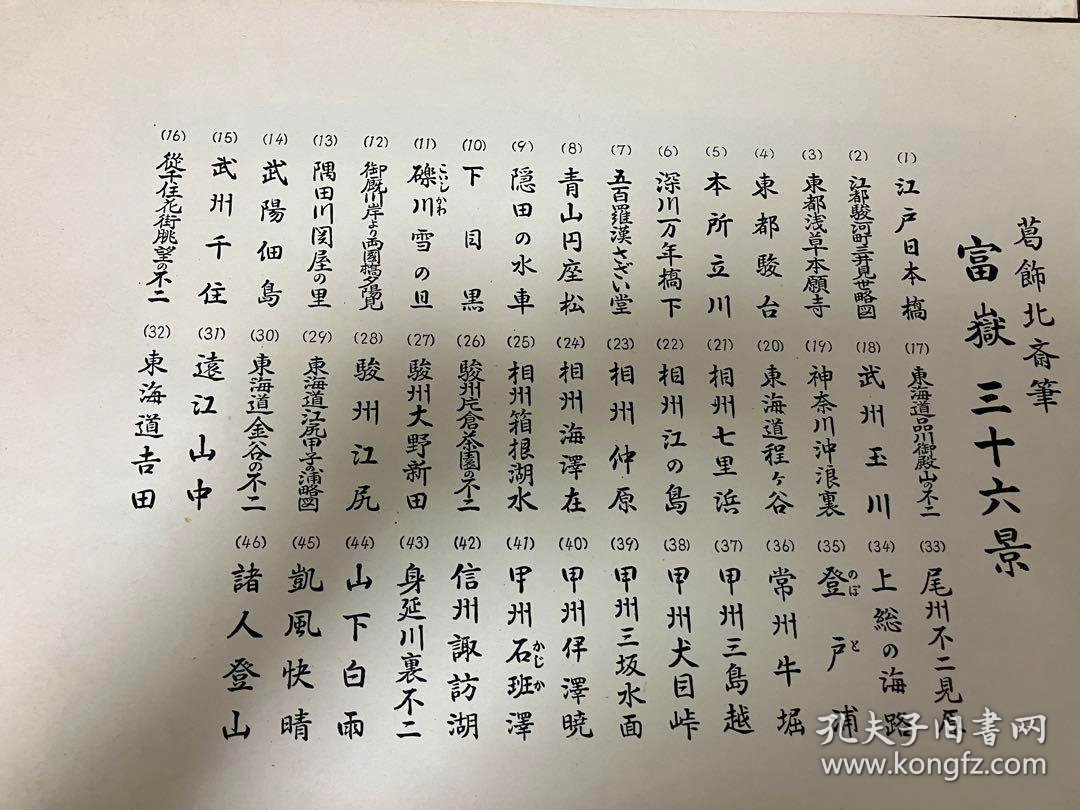 葛飾北斎筆
富嶽三十六景
(1) 江戸日本橋
(2) 江都駿河町三井見世略図
(3) 東都浅草本願寺
(4) 東都駿台
(5) 本所立川
(6) 深川万年橋下
(7) 五百羅漢さざい堂
(8) 青山円座松
(9) 隠田の水車
(10) 下目黒
(11) 礫川雪の旦
こいしかわ
(12) 御厩川岸より両國橋夕陽見
(13) 隅田川関屋の里
(14) 武陽佃島
(15) 武州千住
(16) 從千住花街眺望の不二
(17) 東海道品川御殿山の不二
(18) 武州玉川
(19) 神奈川沖浪裏
(20) 東海道程ヶ谷
(21) 相州七里浜
(22) 相州江の島
(23) 相州仲原
(24) 相州海澤在
(25) 相州箱根湖水
(26) 駿州片倉茶園の不二
(27) 駿州大野新田
(28) 駿州江尻
(29) 東海道江尻田子の浦略図
(30) 東海道金谷の不二
(31) 遠江山中
(32) 東海道吉田
(33) 尾州不二見原
(34) 上総の海路
(35) 登戸浦
のぼと
(36) 常州牛堀
(37) 甲州三島越
(38) 甲州犬目峠
(39) 甲州三坂水面
(40) 甲州伊澤曉
(41) 甲州石班澤
かじか
(42) 信州諏訪湖
(43) 身延川裏不二
(44) 山下白雨
(45) 凱風快晴
(46) 諸人登山
孔夫子旧书网
www.kongfz.com